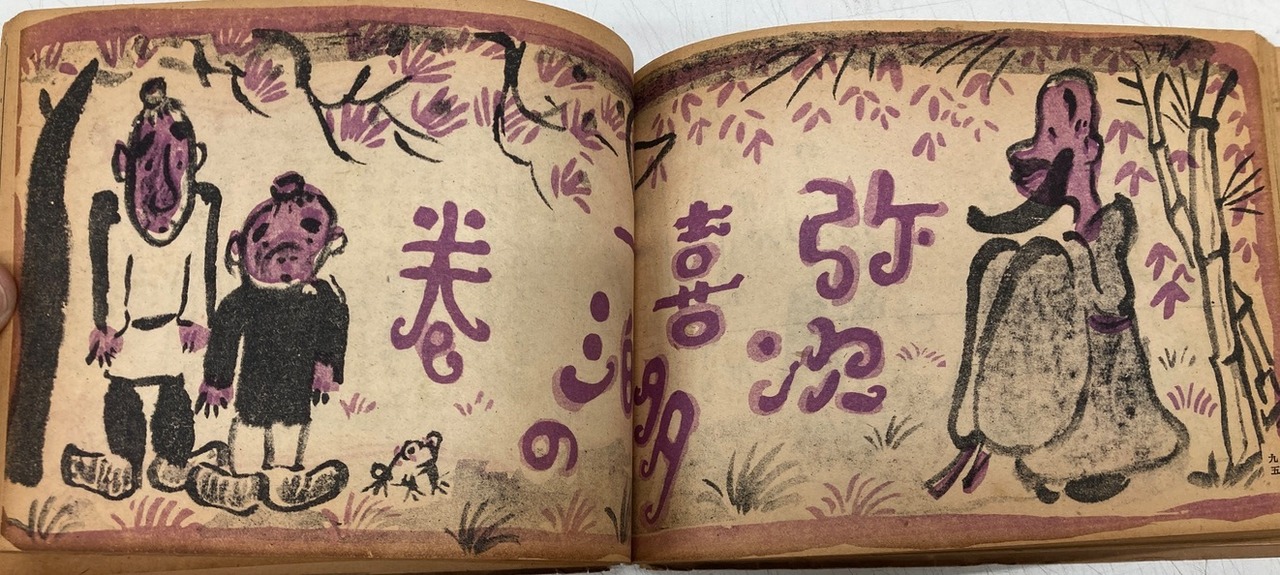 弥次
喜多
の
巻
九五